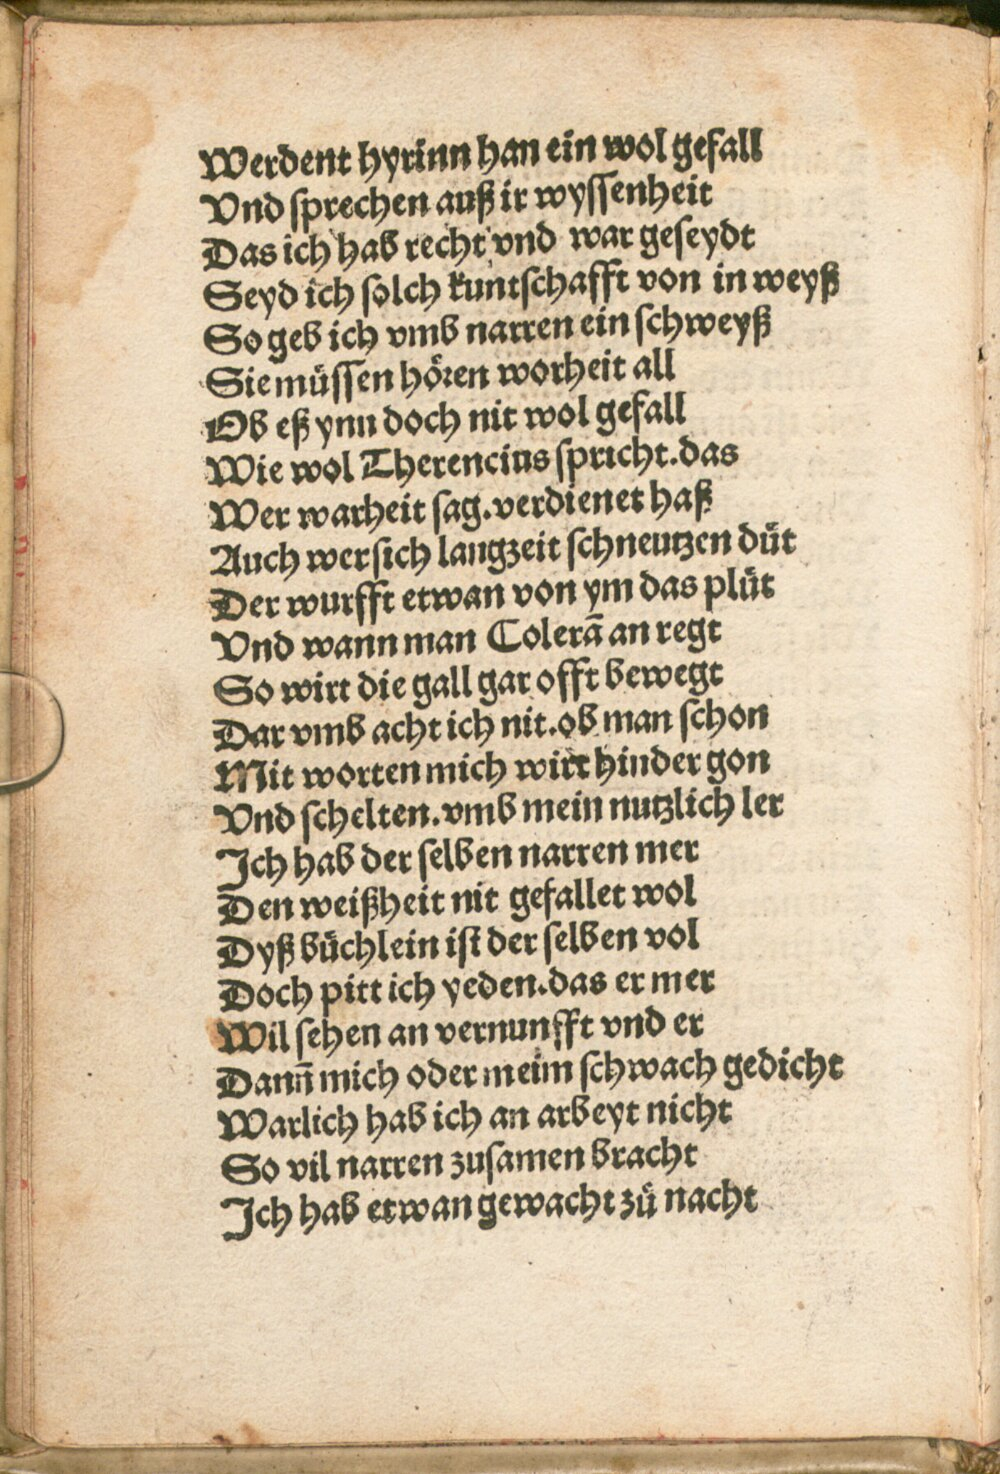 Werdent hyrinn han ein wol gefall
Vnd sprechen auß ir wyssenheit
Das ich hab recht vnd war geseydt
Seyd ich solch kuntschafft von in weyß
So geb ich vmb narren ein schweyß
Sie müssen hören worheit all
Ob eß ynn doch nit wol gefall
Wie wol Therencius spricht.das
Wer warheit sag.verdienet haß
Auch wer sich langzeit schneutzen düt
Der wurfft etwan von ym das plüt
Vnd wann man Colerā an regt
So wirt die gall gar offt bewegt
Dar vmb acht ich nit.ob man schon
Mit worten mich wirt hinder gon
Vnd schelten.vmb mein nutzlich ler
Ich hab der selben narren mer
Den weißheit nit gefallet wol
Dyß büchlein ist der selben vol
Doch pitt ich yeden.das er mer
Wil sehen an vernunfft vnd er
Dann̄ mich oder meim schwach gedicht
Warlich hab ich an arbeyt nicht
So vil narren zusamen bracht
Ich hab etwan gewacht zü nacht